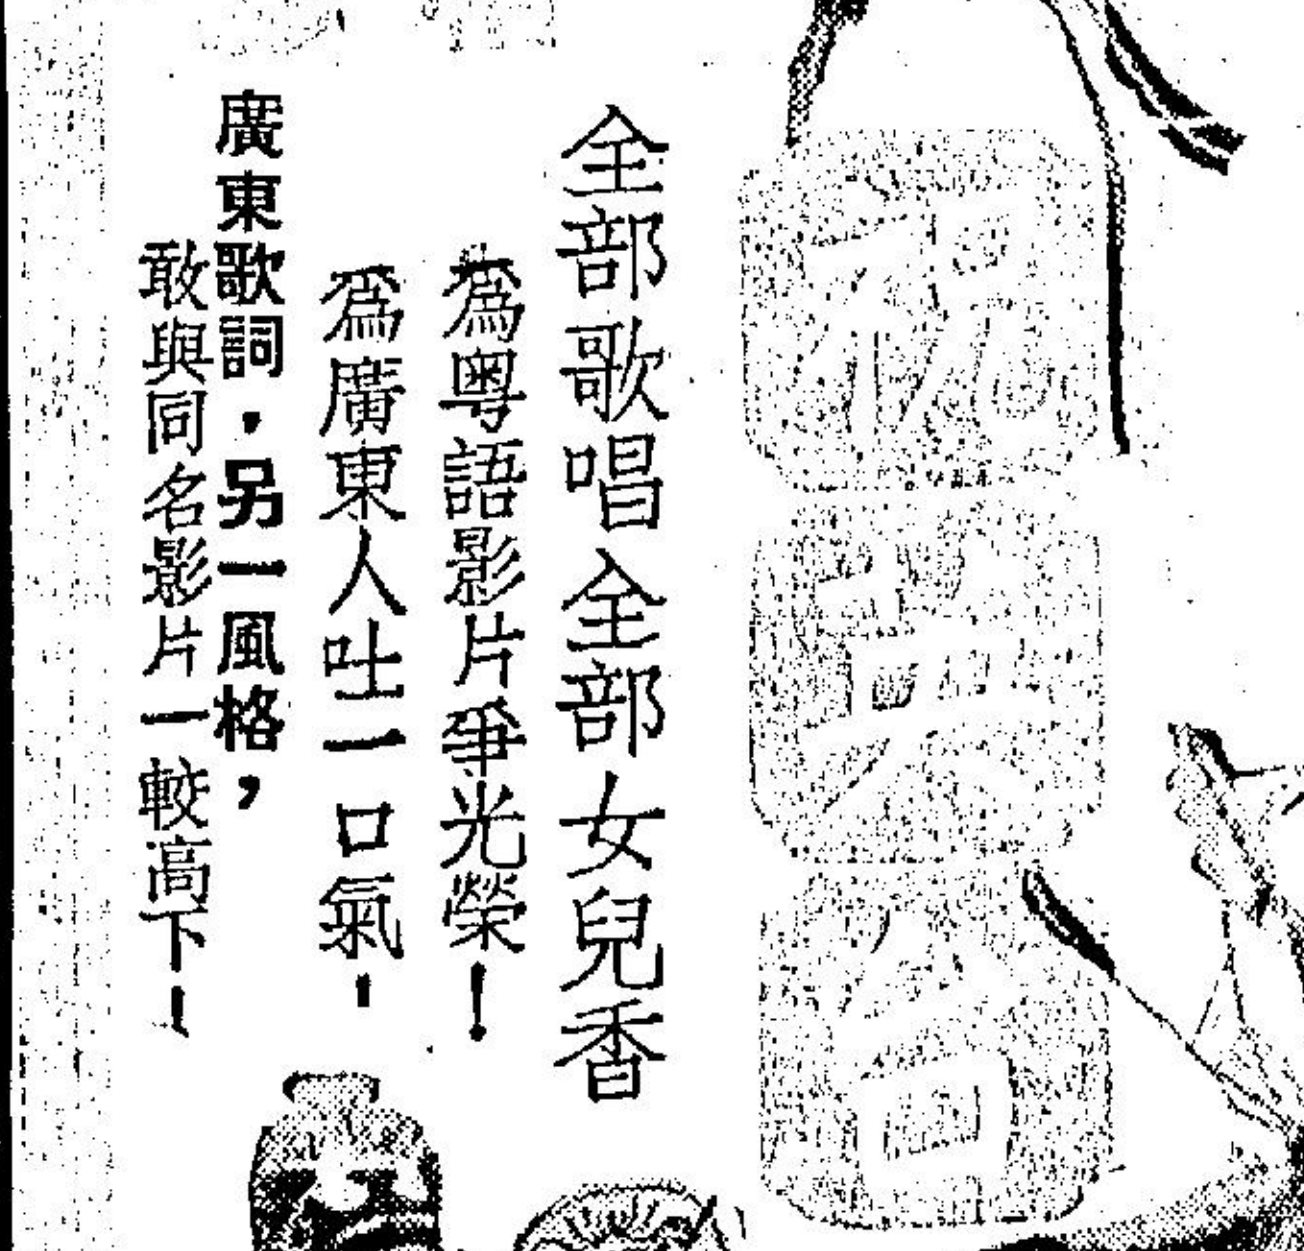 祝英台
全部歌唱全部女兒香
為粵語影片爭光榮！
為廣東人吐一口氣！
廣東歌詞，另一風格，
敢與同名影片一較高下！